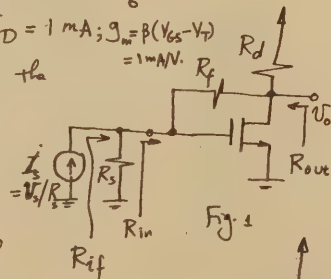 D = 1 mA; g_m = β(V_GS - V_T)
= 1 mA/V.
the
R_d
R_f
v_o
R_out
I_s
= V_s/R_s
R_s
R_in
R_if
Fig. 1